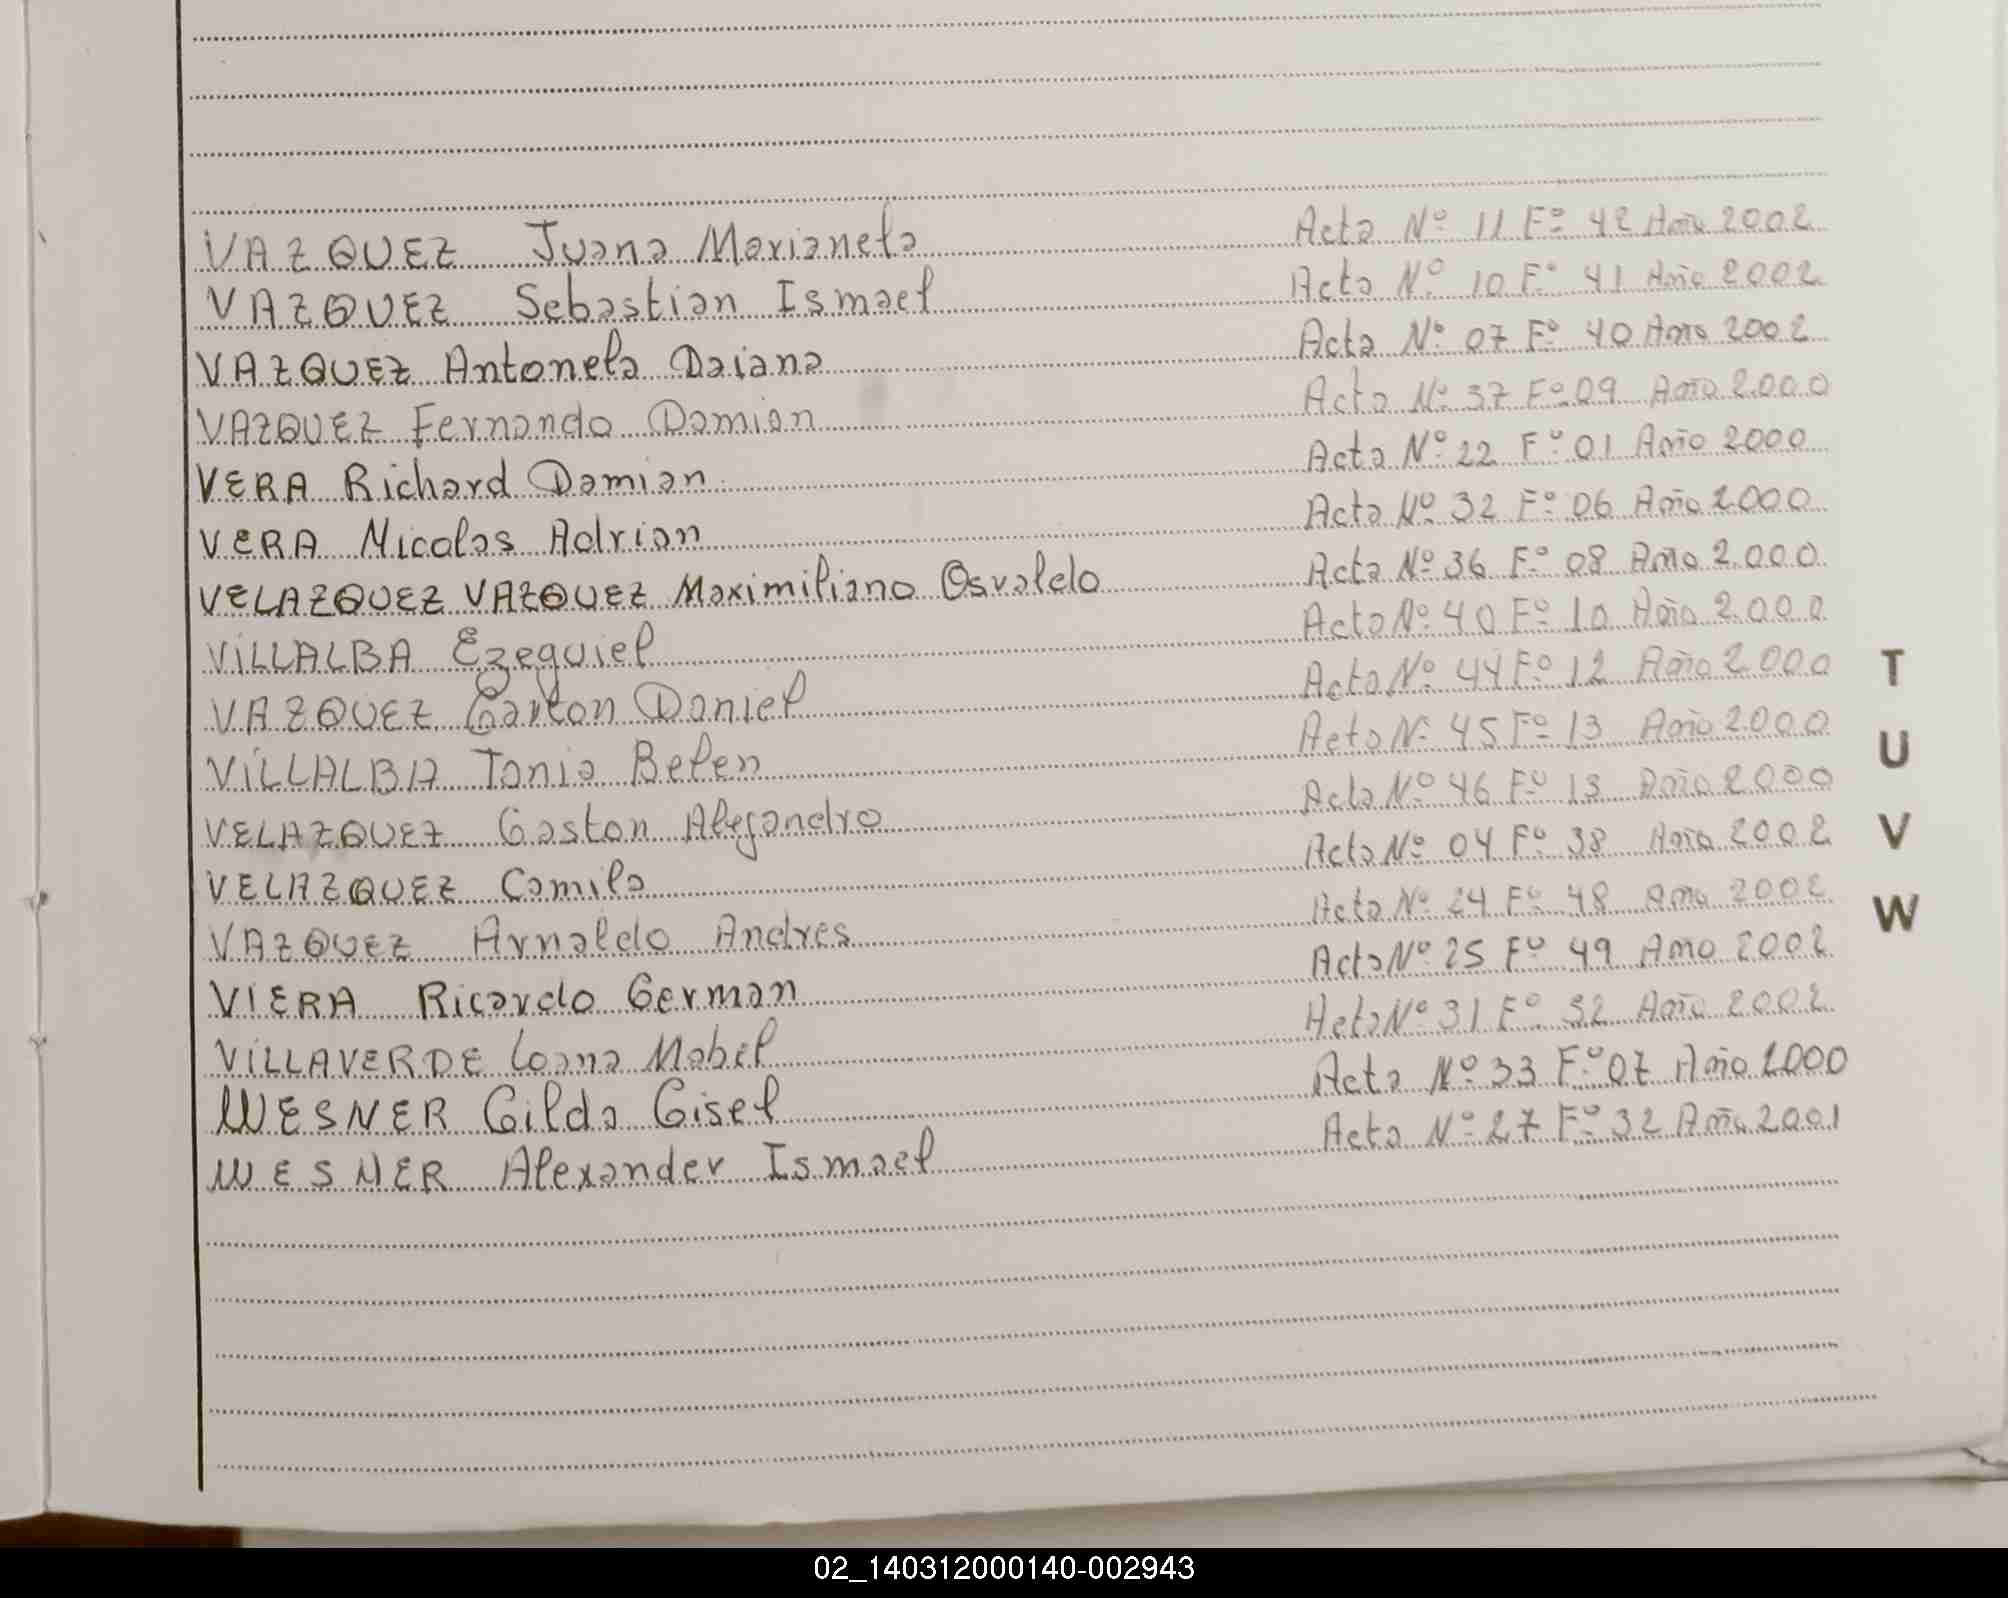 VAZQUEZ Juana Marianela Acta Nº 11 Fº 42 Año 2002
VAZQUEZ Sebastian Ismael Acta Nº 10 Fº 41 Año 2002
VAZQUEZ Antonela Daiana Acta Nº 07 Fº 40 Año 2002
VAZQUEZ Fernando Damian Acta Nº 37 Fº 09 Año 2.000
VERA Richard Damian Acta Nº 22 Fº 01 Año 2000
VERA Nicolas Adrian Acta Nº 32 Fº 06 Año 2.000
VELAZQUEZ VAZQUEZ Maximiliano Osvaldo Acta Nº 36 Fº 08 Año 2.000
VILLALBA Ezequiel Acta Nº 40 Fº 10 Año 2.000
VAZQUEZ Daniel Acta Nº 44 Fº 12 Año 2.000
VILLALBA Tania Belen Acta Nº 45 Fº 13 Año 2.000
VELAZQUEZ Gaston Alejandro Acta Nº 46 Fº 13 Año 2000
VELAZQUEZ Camila Acta Nº 04 Fº 38 Año 2002
VAZQUEZ Arnaldo Andres Acta Nº 24 Fº 48 Año 2002
VIERA Ricardo German Acta Nº 25 Fº 49 Año 2002
VILLAVERDE Mabel Acta Nº 31 Fº 52 Año 2002
WESNER Gilda Gisel Acta Nº 33 Fº 07 Año 2000
WESNER Alexander Ismael Acta Nº 27 Fº 32 Año 2001
T
U
V
W
02_140312000140-002943